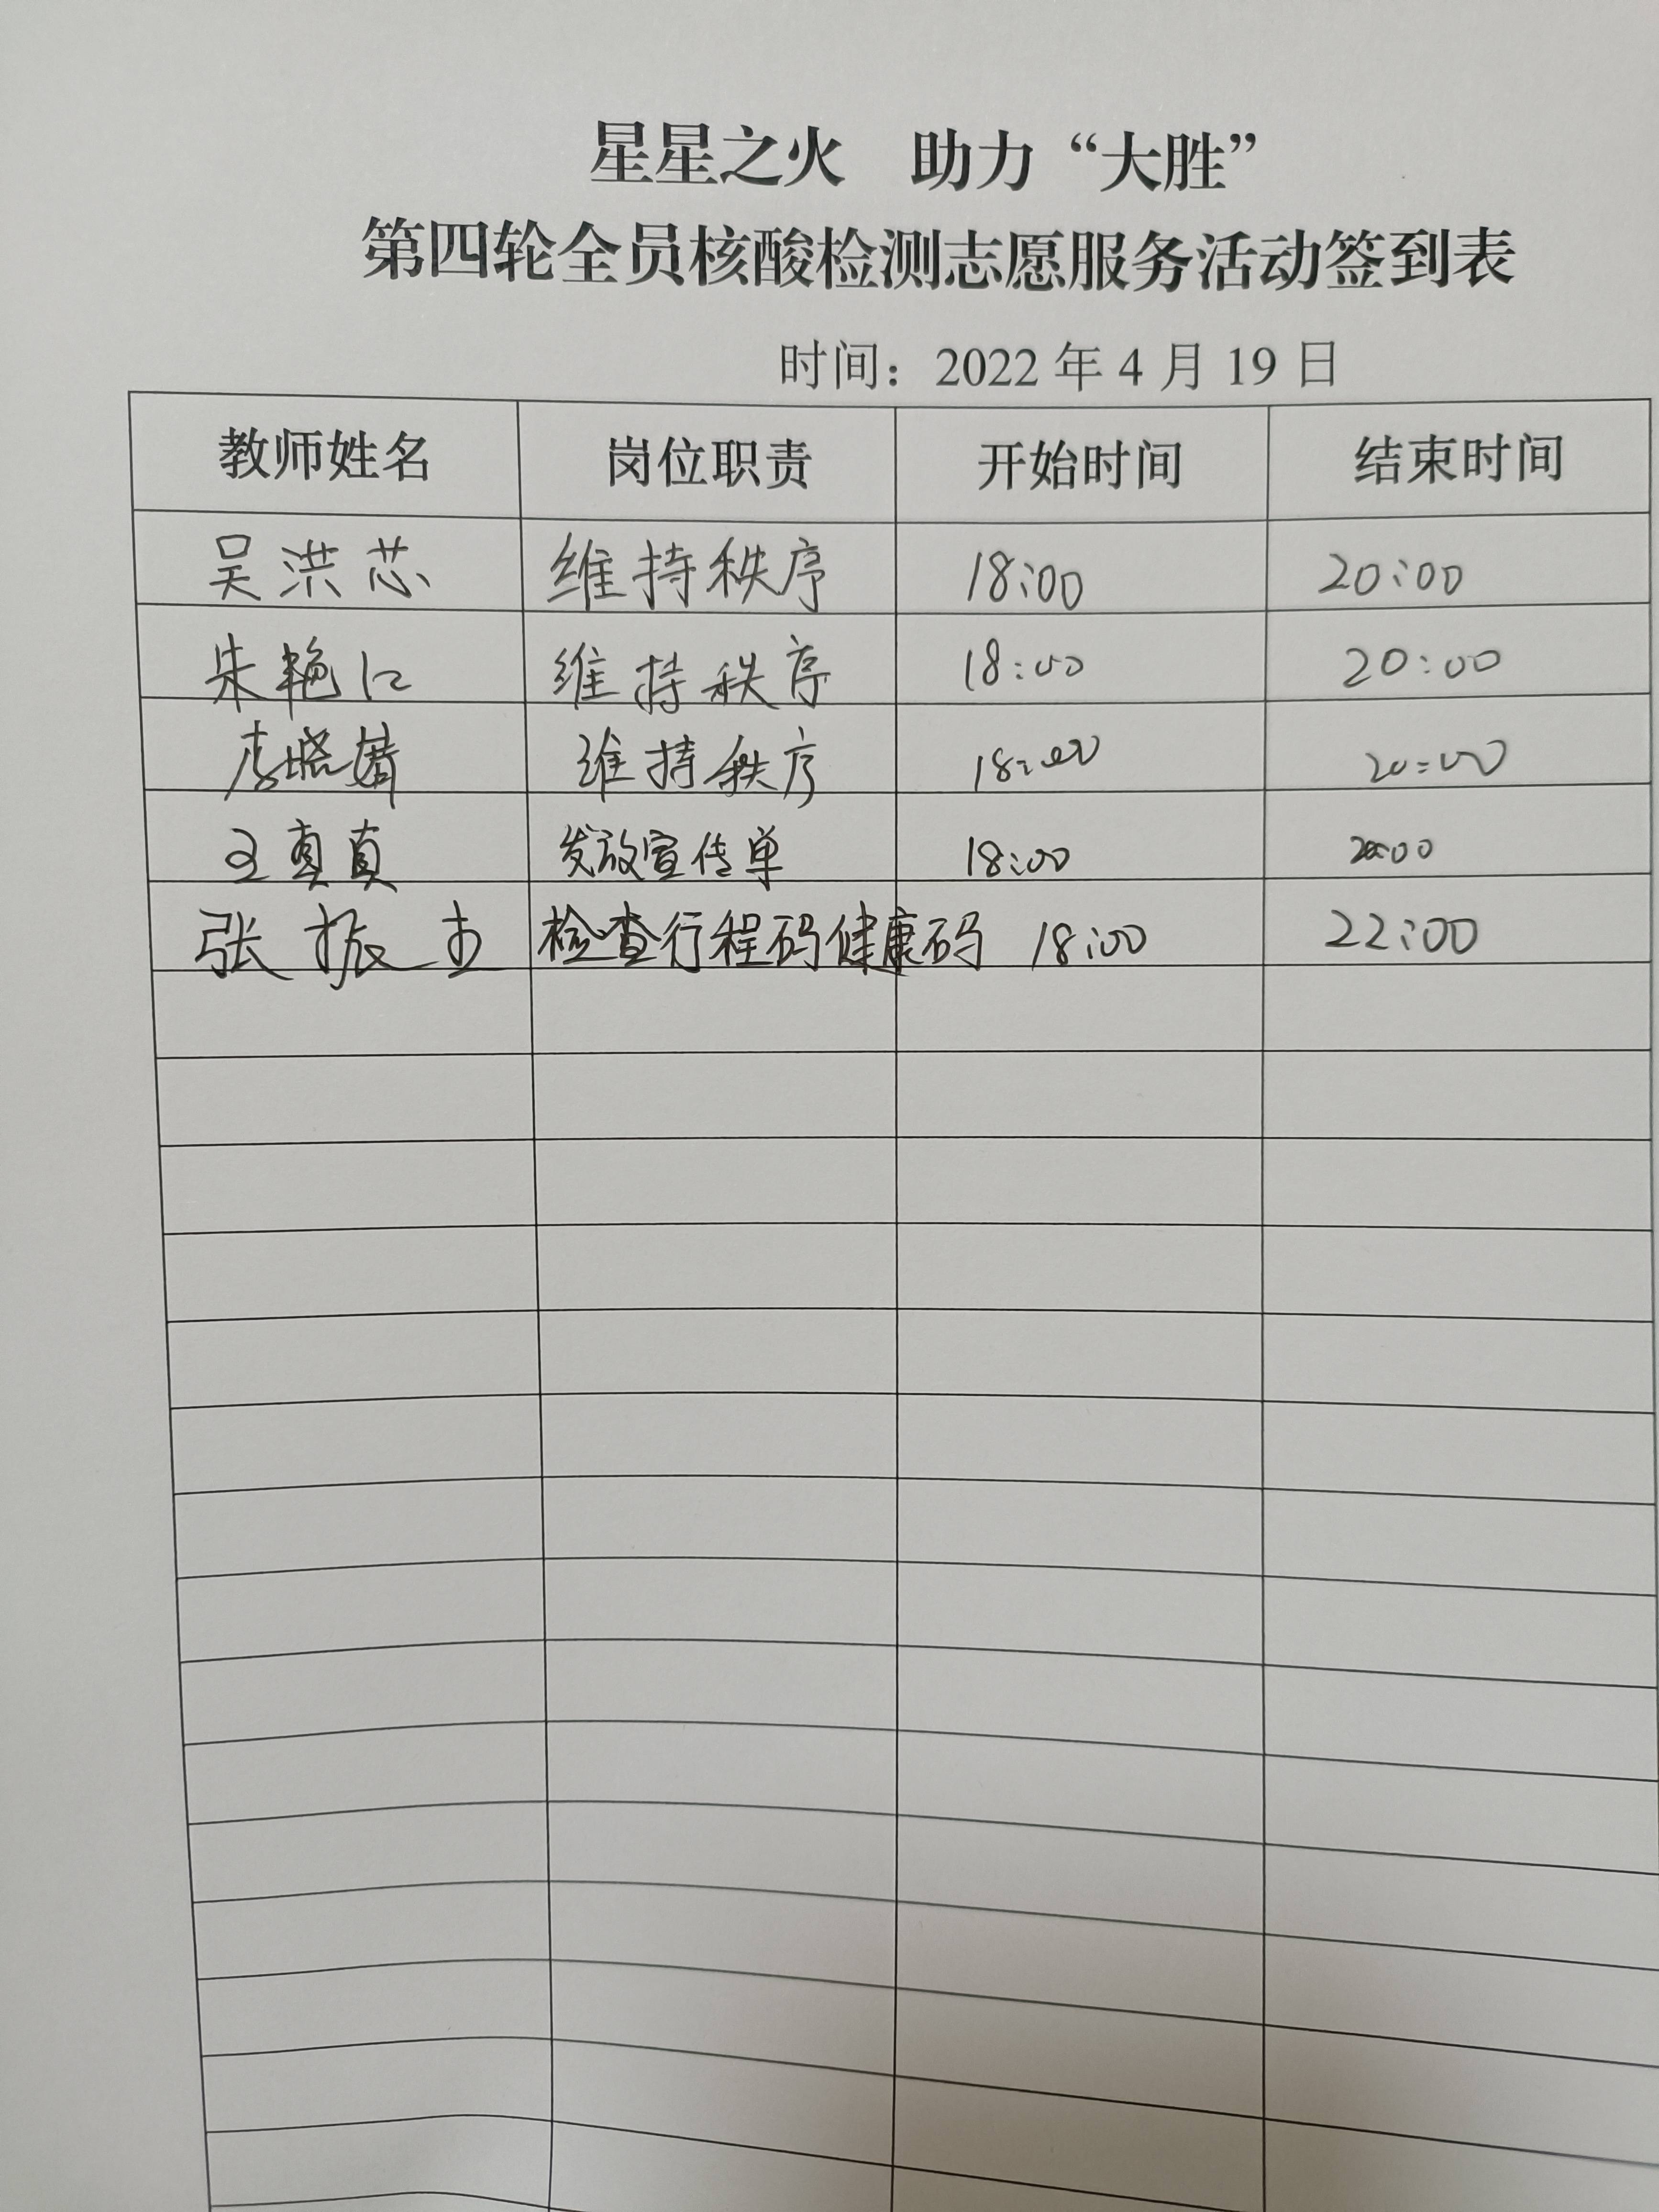 星星之火 助力“大胜”
第四轮全员核酸检测志愿服务活动签到表
时间：2022 年 4 月 19 日
教师姓名 岗位职责 开始时间 结束时间
吴洪芯 维持秩序 18:00 20:00
朱艳江 维持秩序 18:00 20:00
李晓 维持秩序 18:00 20:00
王真真 发放宣传单 18:00 20:00
张振 检查行程码健康码 18:00 22:00